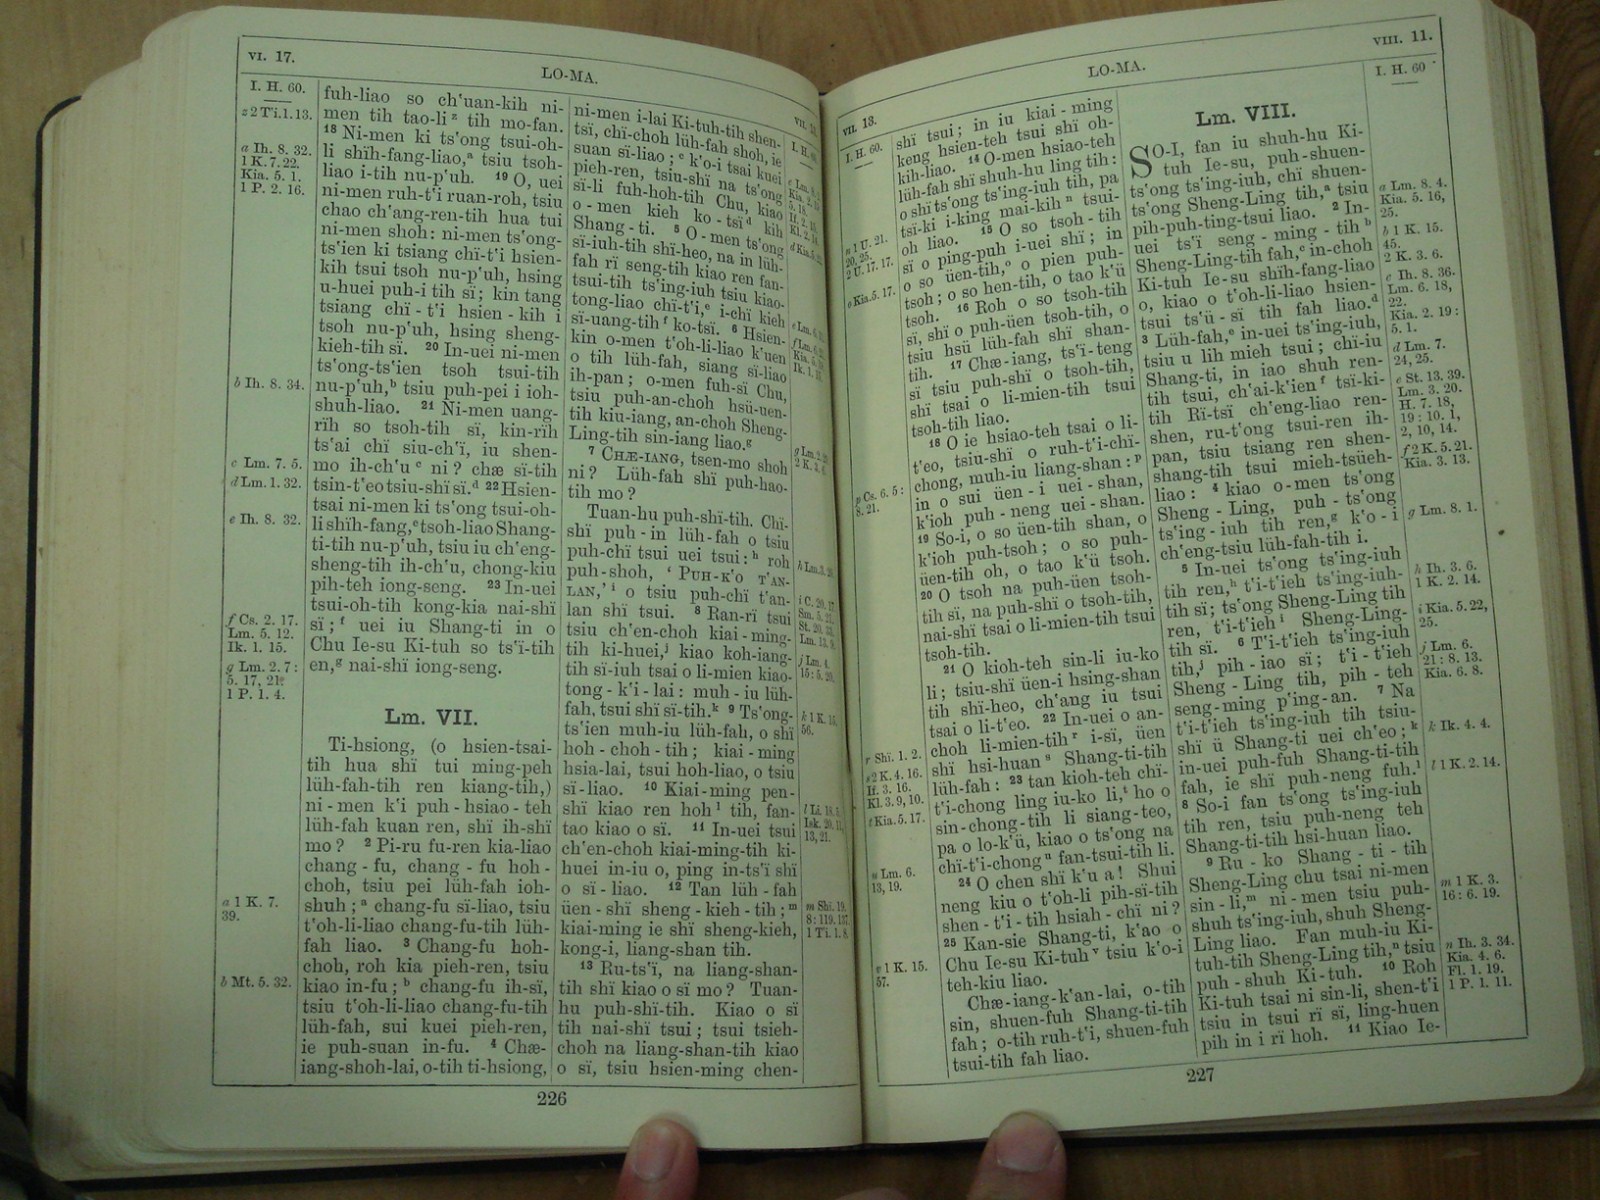 VI. 17.
LO-MA.
I. H. 60.
z 2 Ti. 1. 13.
a Ih. 8. 32.
1 K. 7. 22.
Kia. 5. 1.
1 P. 2. 16.
b Ih. 8. 34.
c Lm. 7. 5.
d Lm. 1. 32.
e Ih. 8. 32.
f Cs. 2. 17.
Lm. 5. 12.
Ik. 1. 15.
g Lm. 2. 7 :
5. 17, 21.
1 P. 1. 4.
a 1 K. 7.
39.
b Mt. 5. 32.
fuh-liao so ch'uan-kih ni-
men tih tao-li z tih mo-fan.
18 Ni-men ki ts'ong tsui-oh-
li shïh-fang-liao,a tsiu tsoh-
liao i-tih nu-p'uh. 19 O, uei
ni-men ruh-t'i ruan-roh, tsiu
chao ch'ang-ren-tih hua tui
ni-men shoh: ni-men ts'ong-
ts'ien ki tsiang chï-t'i hsien-
kih tsui tsoh nu-p'uh, hsing
u-huei puh-i tih sï; kin tang
tsiang chï-t'i hsien-kih i
tsoh nu-p'uh, hsing sheng-
kieh-tih sï. 20 In-uei ni-men
ts'ong-ts'ien tsoh tsui-tih
nu-p'uh,b tsiu puh-pei i ioh-
shuh-liao. 21 Ni-men uang-
rïh so tsoh-tih sï, kin-rïh
ts'ai chï siu-ch'ï, iu shen-
mo ih-ch'u c ni? chæ sï-tih
tsin-t'eo tsiu-shï sï.d 22 Hsien-
tsai ni-men ki ts'ong tsui-oh-
li shïh-fang,e tsoh-liao Shang-
ti-tih nu-p'uh, tsiu iu ch'eng-
sheng-tih ih-ch'u, chong-kiu
pih-teh iong-seng. 23 In-uei
tsui-oh-tih kong-kia nai-shï
sï;f uei iu Shang-ti in o
Chu Ie-su Ki-tuh so ts'ï-tih
en,g nai-shï iong-seng.
Lm. VII.
Ti-hsiong, (o hsien-tsai-
tih hua shï tui ming-peh
lüh-fah-tih ren kiang-tih,)
ni-men k'i puh-hsiao-teh
lüh-fah kuan ren, shï ih-shï
mo? 2 Pi-ru fu-ren kia-liao
chang-fu, chang-fu hoh-
choh, tsiu pei lüh-fah ioh-
shuh;a chang-fu sï-liao, tsiu
t'oh-li-liao chang-fu-tih lüh-
fah liao. 3 Chang-fu hoh-
choh, roh kia pieh-ren, tsiu
kiao in-fu;b chang-fu ih-sï,
tsiu t'oh-li-liao chang-fu-tih
lüh-fah, sui kuei pieh-ren,
ie puh-suan in-fu. 4 Chæ-
iang-shoh-lai, o-tih ti-hsiong,
ni-men i-lai Ki-tuh-tih shen-
tsï, chï-choh lüh-fah shoh, ie
suan sï-liao;c k'o-i tsai kuei
pieh-ren, tsiu-shï na ts'ong
sï-li fuh-hoh-tih Chu, kiao
o-men kieh ko-tsï d kih
Shang-ti. 5 O-men ts'ong
sï-iuh-tih shï-heo, na in lüh-
fah rï seng-tih kiao ren fan-
tsui-tih ts'ing-iuh tsiu kiao-
tong-liao chï-t'i,e i-chï kieh
sï-uang-tih f ko-tsï. 6 Hsien-
kin o-men t'oh-li-liao k'uen
o tih lüh-fah, siang sï-liao
ih-pan; o-men fuh-sï Chu,
tsiu puh-an-choh hsü-uen-
tih kiu-iang, an-choh Sheng-
Ling-tih sin-iang liao.g
7 CHÆ-IANG, tsen-mo shoh
ni? Lüh-fah shï puh-hao-
tih mo?
Tuan-hu puh-shï-tih. Chï-
shï puh-in lüh-fah o tsiu
puh-chï tsui uei tsui:h roh
puh-shoh, 'PUH-K'O T'AN-
LAN,' i o tsiu puh-chï t'an-
lan shï tsui. 8 Ran-rï tsui
tsiu ch'en-choh kiai-ming-
tih ki-huei,j kiao koh-iang-
tih sï-iuh tsai o li-mien kiao-
tong-k'i-lai: muh-iu lüh-
fah, tsui shï sï-tih.k 9 Ts'ong-
ts'ien muh-iu lüh-fah, o shï
hoh-choh-tih; kiai-ming
hsia-lai, tsui hoh-liao, o tsiu
sï-liao. 10 Kiai-ming pen-
shï kiao ren hoh l tih, fan-
tao kiao o sï. 11 In-uei tsui
ch'en-choh kiai-ming-tih ki-
huei in-iu o, ping in-ts'ï shï
o sï-liao. 12 Tan lüh-fah
üen-shï sheng-kieh-tih;m
kiai-ming ie shï sheng-kieh,
kong-i, liang-shan tih.
13 Ru-ts'ï, na liang-shan-
tih shï kiao o sï mo? Tuan-
hu puh-shï-tih. Kiao o sï
tih nai-shï tsui; tsui tsieh-
choh na liang-shan-tih kiao
o sï, tsiu hsien-ming chen-
k 1 K. 15.
56.
m Shi. 19.
8 : 119. 137.
1 Ti. 1. 8.
226
VII. 13.
LO-MA.
VIII. 11.
I. H. 60.
n 1 U. 21.
20, 25.
2 U. 17. 17.
o Kia. 5. 17.
p Cs. 6. 5 :
8. 21.
r Shï. 1. 2.
s 2 K. 4. 16.
If. 3. 16.
Kl. 3. 9, 10.
t Kia. 5. 17.
u Lm. 6.
13, 19.
v 1 K. 15.
57.
shï tsui; in iu kiai-ming
keng hsien-teh tsui shï oh-
kih-liao. 14 O-men hsiao-teh
lüh-fah shï shuh-hu ling tih:
o shï ts'ong ts'ing-iuh tih, pa
tsï-ki i-king mai-kih n tsui-
oh liao. 15 O so tsoh-tih
sï o ping-puh i-uei shï; in
o so üen-tih,o o pien puh-
tsoh; o so hen-tih, o tao k'ü
tsoh. 16 Roh o so tsoh-tih
sï, shï o puh-üen tsoh-tih, o
tsiu hsü lüh-fah shï shan-
tih. 17 Chæ-iang, ts'ï-teng
sï tsiu puh-shï o tsoh-tih,
shï tsai o li-mien-tih tsui
tsoh-tih liao.
18 O ie hsiao-teh tsai o li-
t'eo, tsiu-shï o ruh-t'i-chï-
chong, muh-iu liang-shan:p
in o sui üen-i uei-shan,
k'ioh puh-neng uei-shan.
19 So-i, o so üen-tih shan, o
k'ioh puh-tsoh; o so puh-
üen-tih oh, o tao k'ü tsoh.
20 O tsoh na puh-üen tsoh-
tih sï, na puh-shï o tsoh-tih,
nai-shï tsai o li-mien-tih tsui
tsoh-tih.
21 O kioh-teh sin-li iu-ko
li; tsiu-shï üen-i hsing-shan
tih shï-heo, ch'ang iu tsui
tsai o li-t'eo. 22 In-uei o an-
choh li-mien-tih r i-sï, üen
shï hsi-huan s Shang-ti-tih
lüh-fah: 23 tan kioh-teh chï-
t'i-chong ling iu-ko li,t ho o
sin-chong-tih li siang-teo,
pa o lo-k'ü, kiao o ts'ong na
chï-t'i-chong u fan-tsui-tih li.
24 O chen shï k'u a! Shui
neng kiu o t'oh-li pih-sï-tih
shen-t'i-tih hsiah-chï ni?
25 Kan-sie Shang-ti, k'ao o
Chu Ie-su Ki-tuh v tsiu k'o-i
teh-kiu liao.
Chæ-iang-k'an-lai, o-tih
sin, shuen-fuh Shang-ti-tih
fah; o-tih ruh-t'i, shuen-fuh
tsui-tih fah liao.
Lm. VIII.
SO-I, fan iu shuh-hu Ki-
tuh Ie-su, puh-shuen-
ts'ong ts'ing-iuh, chï shuen-
ts'ong Sheng-Ling tih,a tsiu
pih-puh-ting-tsui liao. 2 In-
uei ts'ï seng-ming-tih b
Sheng-Ling-tih fah,c in-choh
Ki-tuh Ie-su shïh-fang-liao
o, kiao o t'oh-li-liao hsien-
tsui ts'ü-sï tih fah liao.d
3 Lüh-fah,e in-uei ts'ing-iuh,
tsiu u lih mieh tsui; chï-iu
Shang-ti, in iao shuh ren-
tih tsui, ch'ai-k'ien f tsï-ki-
tih Rï-tsï ch'eng-liao ren-
shen, ru-t'ong tsui-ren ih-
pan, tsiu tsiang ren shen-
shang-tih tsui mieh-tsüeh-
liao: 4 kiao o-men ts'ong
Sheng-Ling, puh-ts'ong
ts'ing-iuh tih ren,g k'o-i
ch'eng-tsiu lüh-fah-tih i.
5 In-uei ts'ong ts'ing-iuh
tih ren,h t'i-t'ieh ts'ing-iuh-
tih sï; ts'ong Sheng-Ling tih
ren, t'i-t'ieh i Sheng-Ling-
tih sï. 6 T'i-t'ieh ts'ing-iuh
tih,j pih-iao sï; t'i-t'ieh
Sheng-Ling tih, pih-teh
seng-ming p'ing-an. 7 Na
t'i-t'ieh ts'ing-iuh tih tsiu-
shï ü Shang-ti uei ch'eo;k
in-uei puh-fuh Shang-ti-tih
fah, ie shï puh-neng fuh.l
8 So-i fan ts'ong ts'ing-iuh
tih ren, tsiu puh-neng teh
Shang-ti-tih hsi-huan liao.
9 Ru-ko Shang-ti-tih
Sheng-Ling chu tsai ni-men
sin-li,m ni-men tsiu puh-
shuh ts'ing-iuh, shuh Sheng-
Ling liao. Fan muh-iu Ki-
tuh-tih Sheng-Ling tih,n tsiu
puh-shuh Ki-tuh. 10 Roh
Ki-tuh tsai ni sin-li, shen-t'i
tsiu in tsui rï sï, ling-huen
pih in i rï hoh. 11 Kiao Ie-
I. H. 60
a Lm. 8. 4.
Kia. 5. 16,
25.
b 1 K. 15.
45.
2 K. 3. 6.
c Ih. 8. 36.
Lm. 6. 18,
22.
Kia. 2. 19 :
5. 1.
d Lm. 7.
24, 25.
e St. 13. 39.
Lm. 3. 20.
H. 7. 18,
19 : 10. 1,
2, 10, 14.
f 2 K. 5. 21.
Kia. 3. 13.
g Lm. 8. 1.
h Ih. 3. 6.
1 K. 2. 14.
i Kia. 5. 22,
25.
j Lm. 6.
21 : 8. 13.
Kia. 6. 8.
k Ik. 4. 4.
l 1 K. 2. 14.
m 1 K. 3.
16 : 6. 19.
n Ih. 3. 34.
Kia. 4. 6.
Fl. 1. 19.
1 P. 1. 11.
227